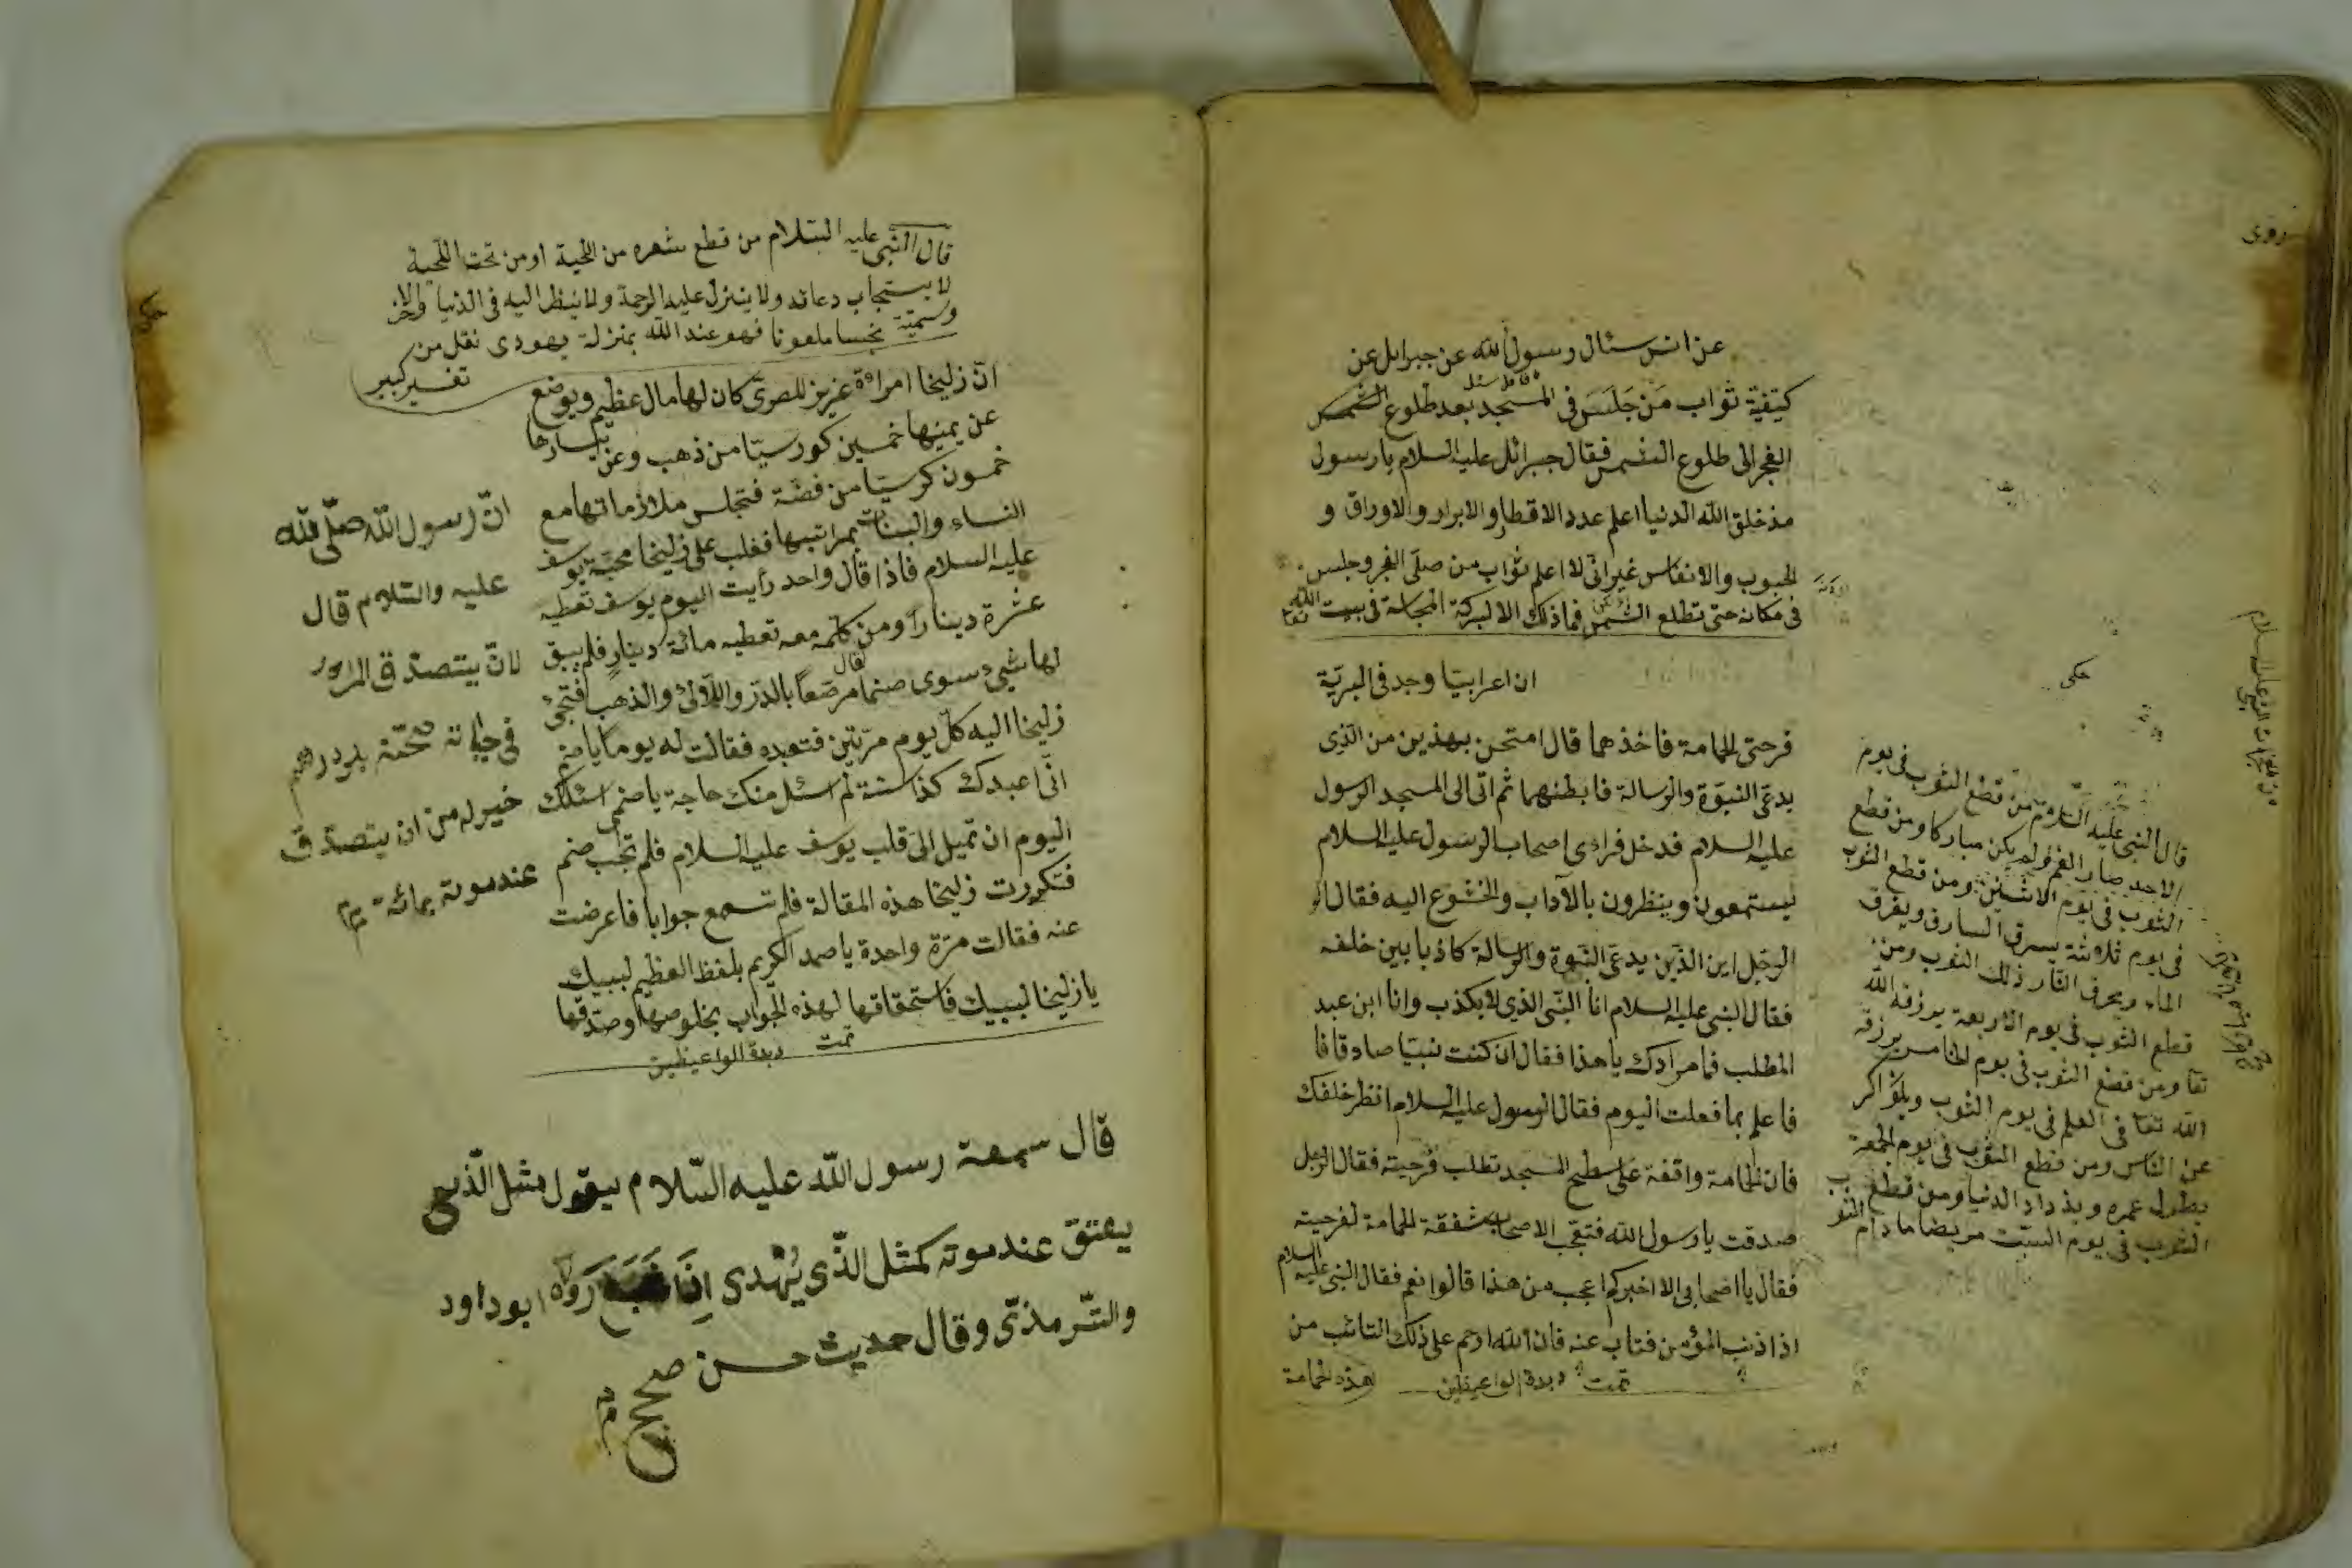 روى
عن انس سئال رسول الله عن جبرايل عن
كيفية ثواب من جَلَسَ فى المسجد بعد طلوع
الفجر الى طلوع الشمس فقال جبرائل عليه السلام يا رسول
مذ خلق الله الدنيا اعلم عدد الاقطار والابرار والاوراق و
الحبوب والانفاس غير انى لا اعلم ثواب من صلى الفجر وجلس
فى مكانه حتى تطلع الشمس فما ذلك الا لبركة المجالسة فى بيت الله تعا
حكى
ان اعرابيا وجد فى البرية
فرحتى الحمامة فاخذهما قال امتحن بهذين من الذى
يدعى النبوة والرسالة فابطنهما ثم اتى الى المسجد الرسول
عليه السلام فدخل فراءى اصحاب الرسول عليه السلام
يستمعون وينظرون بالآداب والخشوع اليه فقال
الرجل اين الذين يدعى النبوة والرسالة كاذبا بين خلفه
فقال النبى عليه السلام انا النبى الذى لا يكذب وانا ابن عبد
المطلب فما مرادك يا هذا فقال ان كنت نبيا صادقا فا
فاعلم بما فعلت اليوم فقال الرسول عليه السلام انظر خلفك
فان الحمامة واقفة على سطح المسجد تطلب فرحيته فقال الرجل
صدقت يا رسول الله فتعجب الاصحاب بشفقة الحمامة لفرحيته
فقال يا اصحابى الا اخبركم اعجب من هذا قالوا نعم فقال النبى عليه السلام
اذا اذنب المؤمن فتاب عنه فان الله ارحم على ذلك التائب من
هذه الحمامة تمت زبدة الواعيظين
قال النبى عليه السلام من قطع الثوب فى يوم
الاحد صار الغم ولم يكن مباركا ومن قطع
الثوب فى يوم الاثنين ومن قطع الثوب
فى يوم ثلاثة يسرق السارق ويغرق
الماء ويحرق النار ذلك الثوب ومن
قطع الثوب فى يوم الاربعة يرزقه الله
تعا ومن قطع الثوب فى يوم الخامس يرزقه
الله تعا فى العلم فى يوم الثوب
عن الناس ومن قطع الثوب فى يوم الجمعة
يطول عمره ويذداد الدنيا ومن قطع
الثوب فى يوم السبت مريضا ما دام
حكى
قال النبى عليه السلام من قطع شعره من اللحية او من تحت اللحية
لا يستجاب دعائه ولا ينزل عليه الرحمة ولا ينظر اليه فى الدنيا والاخر
وسميته نجسا ملعونا فهو عند الله بمنزلة يهودى نقل من
تفسير كبير
ان زليخا امراءة عزيز المصرى كان لها مال عظيم ويوضع
عن يمينها خمسين كورسيا من ذهب وعن يسارها
خمسون كرسيا من فضة فتجلس ملازماتها مع
النساء والبنات بمراتبها فغلب على زليخا محبة يوسف
عليه السلام فاذا قال واحد رأيت اليوم يوسف تعطيه
عشرة دينارا ومن كلمه معه تعطيه مائة دينار فلم يبق
لها شيئ سوى صنما مرصعا بالدرر واللآلئ والذهب فتجئ
زليخا اليه كل يوم مرتين فتعبده فقالت له يوما يا صنم
انى اعبدك كذا سنة لم اسئل منك حاجة يا صنمى اسئلك
اليوم ان تميل الى قلب يوسف عليه السلام فلم تجب صنم
فتكررت زليخا هذه المقالة فلم تسمع جوابا فاعرضت
عنه فقالت مرة واحدة يا صمد الكريم بلفظ العظيم لبيبك
يا زليخا لبيبك فاستحقاقها لهذه الجواب بخلوصها وصدقها
تمت زبدة الواعيظين
ان رسول الله صلى الله
عليه والسلام قال
لان يتصدق المرء
فى حياته بدرهم
خير له من ان يتصدق
عند موته بمائة
قال سمعة رسول الله عليه السلام يقول مثل الذى
يعتق عند موته كمثل الذى يُهْدى اِذَا شَبَعَ رَوَاه ابو داود
والترمذى وقال حديث حسن صحيح